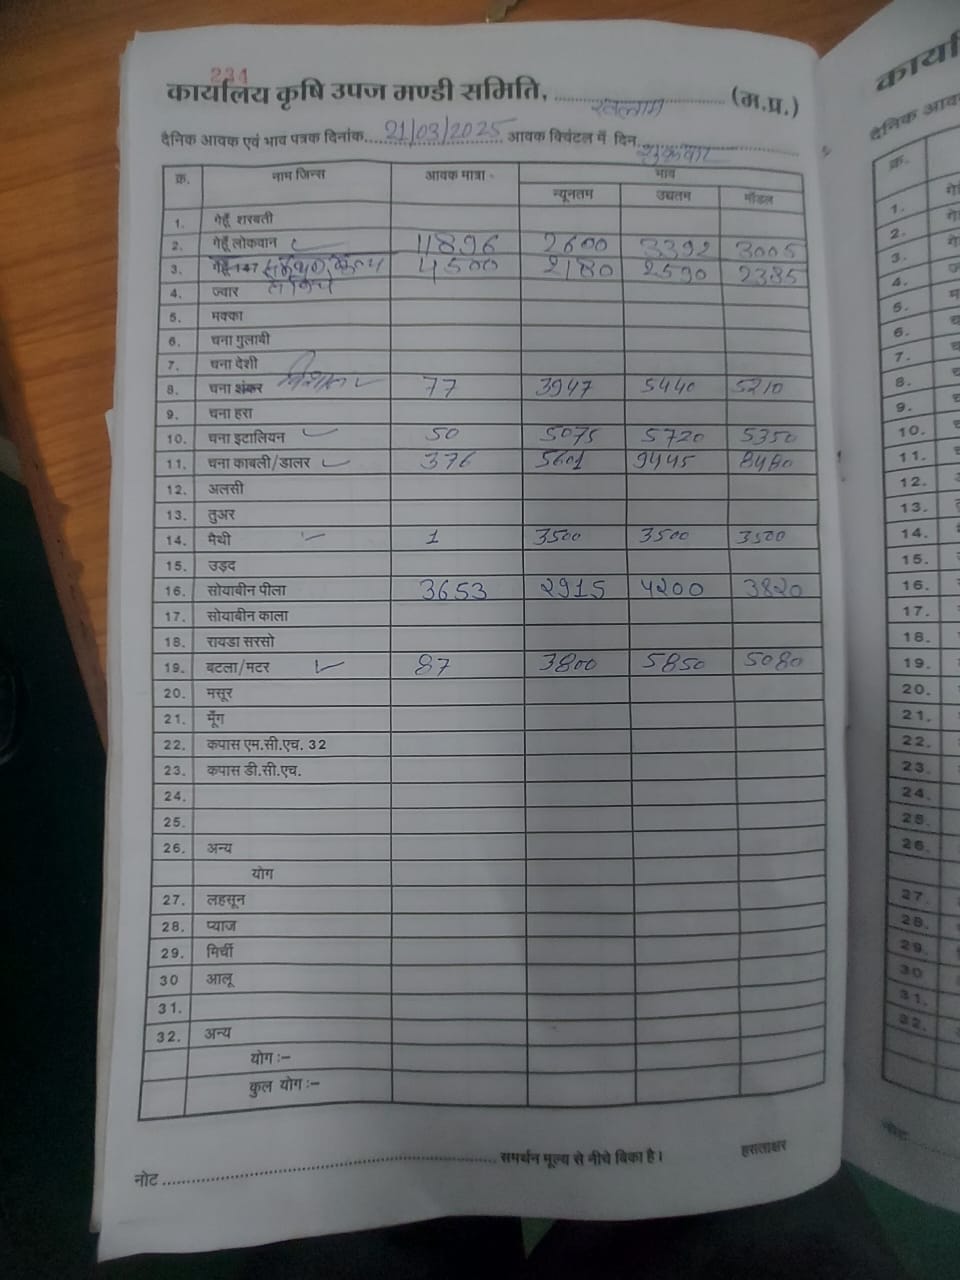 234
कार्यालय कृषि उपज मण्डी समिति, रतलाम (म.प्र.)
दैनिक आवक एवं भाव पत्रक दिनांक 21/03/2025 आवक क्विंटल में दिन शुक्रवार
क्र. नाम जिन्स आवक मात्रा भाव
न्यूनतम उच्चतम मॉडल
1. गेहूँ शरबती
2. गेहूँ लोकवान 11896 2600 3392 3005
3. गेहूँ 147 4500 2180 2590 2385
4. ज्वार
5. मक्का
6. चना गुलाबी
7. चना देशी
8. चना शंकर विशाल 77 3947 5440 5210
9. चना हरा
10. चना इटालियन 50 5075 5720 5350
11. चना काबली/डालर 376 5601 9445 8480
12. अलसी
13. तुअर
14. मैथी 1 3500 3500 3500
15. उड़द
16. सोयाबीन पीला 3653 2915 4200 3820
17. सोयाबीन काला
18. रायडा सरसो
19. बटला/मटर 87 3800 5850 5080
20. मसूर
21. मूँग
22. कपास एम.सी.एच. 32
23. कपास डी.सी.एच.
24.
25.
26. अन्य
योग
27. लहसून
28. प्याज
29. मिर्ची
30 आलू
31.
32. अन्य
योग :-
कुल योग :-
नोट समर्थन मूल्य से नीचे बिका है। हस्ताक्षर